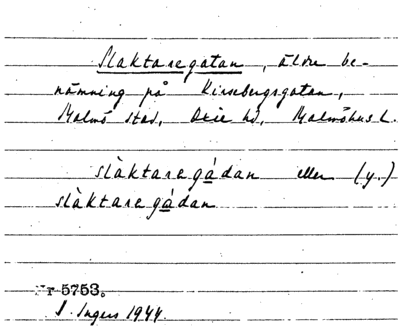 Slaktaregatan, äldre be-
nämning på Kirsebergsgatan,
Malmö stad, Oxie hd, Malmöhus l.
slàktaregádan eller (y.)
slàktaregádan
Nr 5753.
I. Ingers 1944.